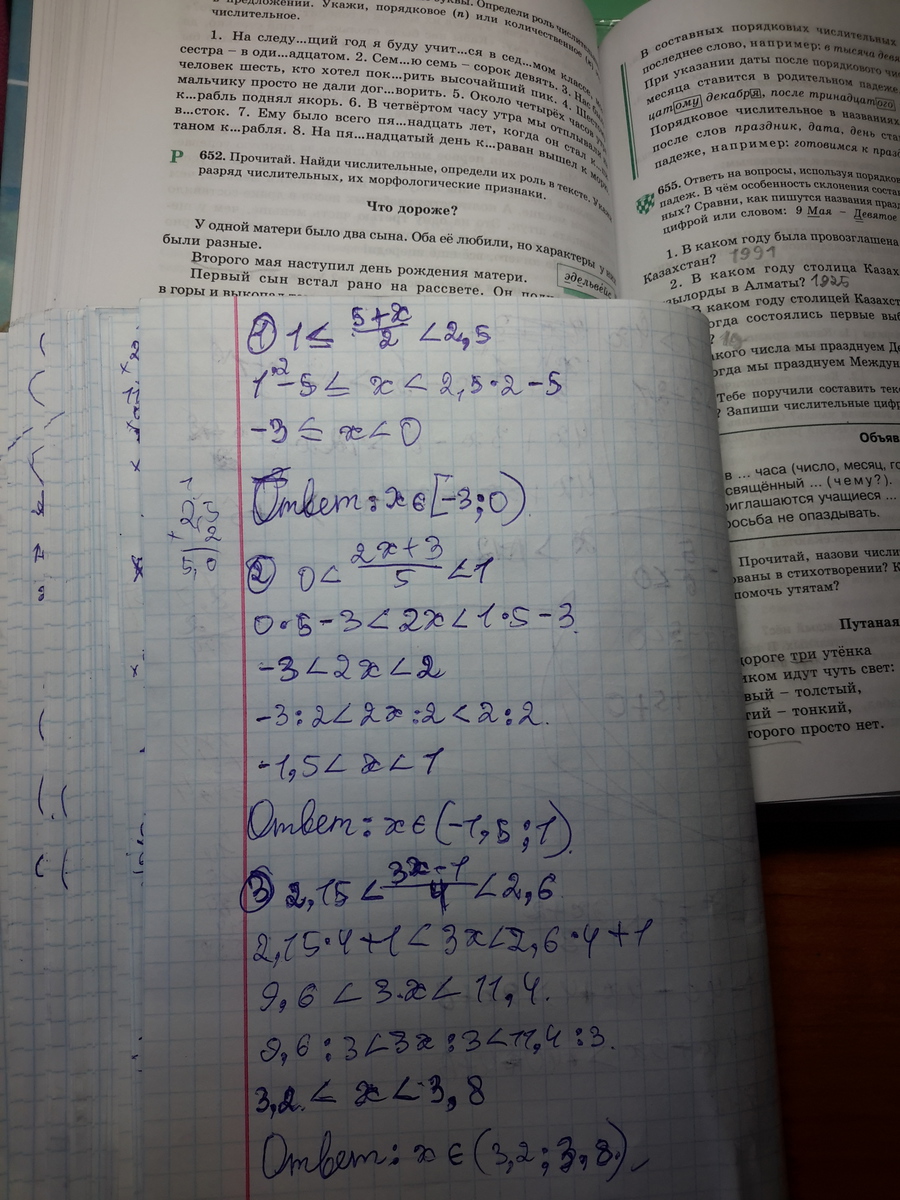 в предложении. Укажи, порядковое (п) или количественное
числительное.
1. На следу...щий год я буду учит...ся в сед...мом классе,
сестра – в оди...адцатом. 2. Сем...ю семь – сорок девять. 3.
человек шесть, кто хотел пок...рить высочайший пик. 4.
мальчику просто не дали дог...ворить. 5. Около четырёх часов
к...рабль поднял якорь. 6. В четвёртом часу утра мы отплывали
в...сток. 7. Ему было всего пя...надцать лет, когда он стал
таном к...рабля. 8. На пя...надцатый день к...раван вышел к
Р 652. Прочитай. Найди числительные, определи их роль в тексте.
разряд числительных, их морфологические признаки.
Что дороже?
У одной матери было два сына. Оба её любили, но характеры у
были разные.
Второго мая наступил день рождения матери.
эдельвейс
Первый сын встал рано на рассвете. Он
в горы и выкопал
В составных порядковых числительных
последнее слово, например: в тысяча
При указании даты после порядкового
месяца ставится в родительном падеже
цатому декабря, после тринадцатого
Порядковое числительное в названиях
после слов праздник, дата, день
падеже, например: готовимся к
655. Ответь на вопросы, используя
падеж. В чём особенность склонения
ных? Сравни, как пишутся названия
цифрой или словом: 9 Мая – Девятое
1. В каком году была провозглашена
Казахстан? 1991
2. В каком году столица
в Алматы? 1925
В каком году столицей
состоялись первые
числа мы празднуем
мы празднуем
Тебе поручили составить
? Запиши числительные
в ... часа (число, месяц,
... (чему?).
учащиеся ...
не опаздывать.
Прочитай, назови
в стихотворении?
помочь утятам?
Путаная
три утёнка
идут чуть свет:
– толстый,
– тонкий,
просто нет.
① 1 ≤ 5+x/2 < 2,5
1·2-5 ≤ x < 2,5·2-5
-3 ≤ x < 0
Ответ: x ∈ [-3;0)
② 0 < 2x+3/5 < 1
0·5-3 < 2x < 1·5-3
-3 < 2x < 2
-3:2 < 2x:2 < 2:2.
-1,5 < x < 1
Ответ: x ∈ (-1,5;1)
③ 2,15 < 3x-1/4 < 2,6
2,15·4+1 < 3x < 2,6·4+1
9,6 < 3x < 11,4.
9,6:3 < 3x:3 < 11,4:3.
3,2 < x < 3,8
Ответ: x ∈ (3,2;3,8)